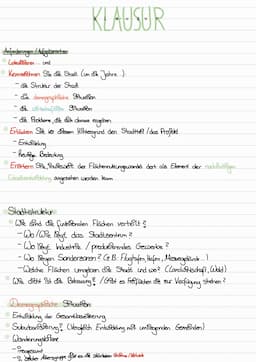 KLAUSUR
Anforderungen / Aufgabenarten
Lokalisieren ... und
Kennzeichnen Sie die Stadt (um die Jahre...)
- die Struktur der Stadt
- die demographische Situation
- die wirtschaftliche Situation
- die Probleme, die sich daraus ergeben
Erläutern Sie vor diesem Hintergrund den Stadtteil / das Projekt
- Entwicklung
- Heutige Bedeutung
Erörtern Sie, inwieweit der Flächennutzungswandel dort als Element der nachhaltigen
Stadtentwicklung angesehen werden kann
Stadtstruktur
Wie sind die funktionalen Flächen verteilt?
- Wo / Wie liegt das Stadtzentrum?
- Wo liegt Industrie / produzierendes Gewerbe?
- Wo liegen Sonderzonen? (z.B. Flughafen, Hafen, Messegelände...)
- Welche Flächen umgeben die Stadt und wo? (Landwirtschaft, Wald)
Wie dicht ist die Bebauung? / Gibt es Freiflächen die zur Verfügung stehen?
Demographische Situation
Entwicklung der Gesamtbevölkerung
Suburbanisierung? (Vergleich Entwicklung mit umliegenden Gemeinden)
Wanderungsbilanz
- Insgesamt